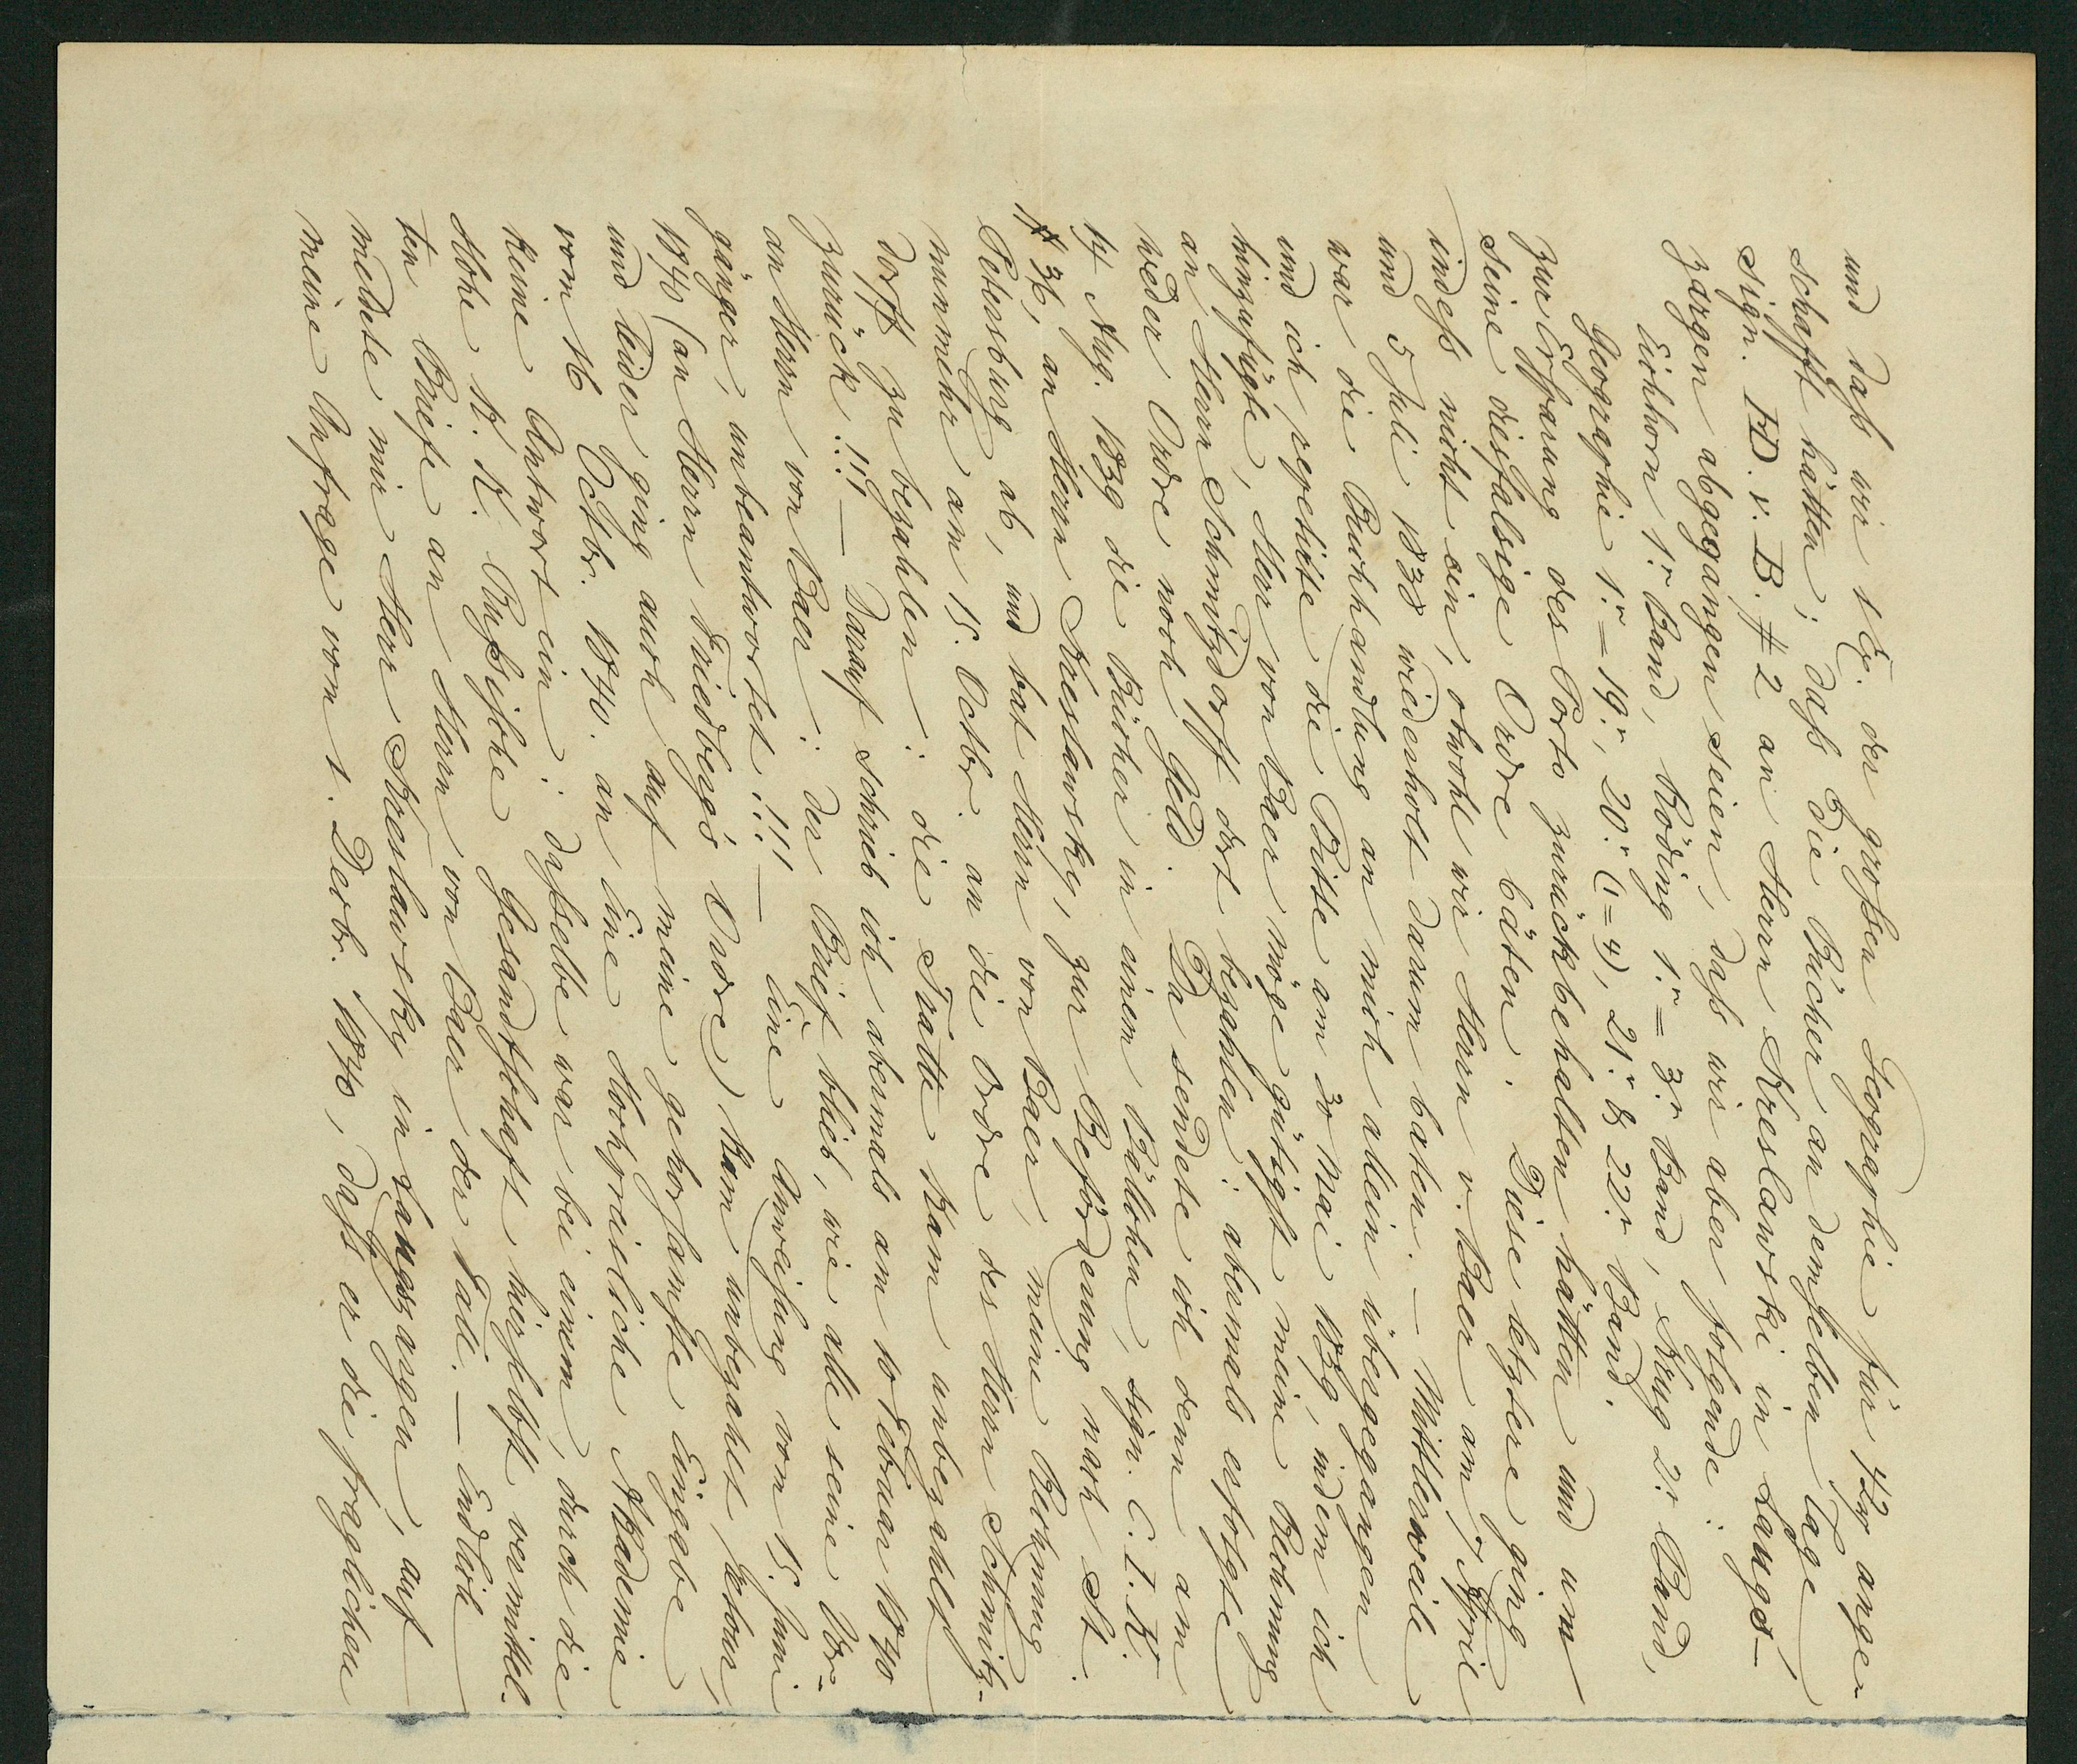 und daß wir 1 Ex. der großen Geographie für 42r ange-
schafft hätten; daß die Bücher an demselben Tage
sign. F.D. v. B. # 2 an Herrn Kreslawski in Laugs-
zargen abgegangen seien, daß wir aber folgende:
Eichhorn 1.r Band, Röding 1.r = 3.r Band, Krug 2.r Band,
Geographie 1.r – 19.r, 20.r (1=4), 21.r & 22.r Band.
zur Ersparung des Porto zurückbehalten hätten und um
seine diesfalsige Ordre bäten. Diese letztere ging
indeß nicht ein, obwohl wir Herrn v. Baer am 7 April
und 5 Juli 1838 wiederholt darum baten. – Mittlerweile
war die Buchhandlung an mich allein übergegangen
und ich repetirte die Bitte am 30 Mai 1839, indem ich
hinzufügte, Herr von Baer möge gütigst meine Rechnung
an Herrn Schmitzdorff dort bezahlen: abermals erfolgte
weder Ordre noch Geld. Da sendete ich denn am
14 Aug. 1839 die Bücher in einem Bällchen, sign. C. I. K.
# 36, an Herrn Koeslawsky, zur Beförderung nach St.
Petersburg ab, und bat Herrn von Baer, meine Rechnung
nunmehr am 15. Octbr. an die Ordre des Herrn Schmitz-
dorff zu bezahlen: die Tratte kam unbezahlt
zurück!!! – Darauf schrieb ich abermals am 10 Februar 1840
an Herrn von Baer: der Brief blieb, wie alle seine Vor-
gänger, unbeantwortet!!! – Eine Anweisung vom 15. Juni
1840 (an Herrn Friedberg's Ordre) kam unbezahlt retour,
und leider ging auch auf meine gehorsamste Eingabe
vom 16 Octbr. 1840. an Eine Hochpreisliche Akademie
keine Antwort ein: dasselbe war bei einem, durch die
Hohe K. K. Russische Gesandtschaft hierselbst vermittel-
ten Briefe an Herrn von Baer der Fall. – Endlich
meldete mir Herr Koeslawsky in Laugszargen, auf
meine Anfrage vom 1. Decbr. 1840, daß er die fraglichen